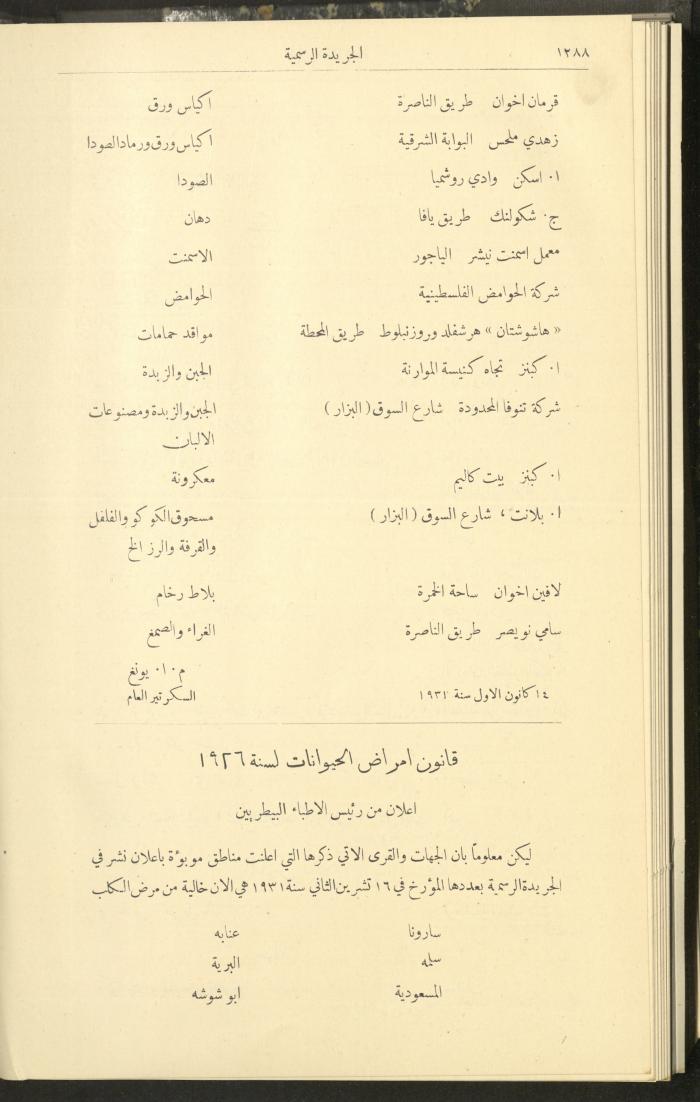 ١٢٨٨ الجريدة الرسمية
قرمان اخوان طريق الناصرة اكياس ورق
زهدي ملحس البوابة الشرقية اكياس ورق ورماد الصودا
ا. اسكن وادي روشميا الصودا
ج. شكولنك طريق يافا دهان
معمل اسمنت نيشر الياجور الاسمنت
شركة الحوامض الفلسطينية الحوامض
« هاشوشتان » هرشفلد وروزنبلوط طريق المحطة مواقد حمامات
ا. كبنز تجاه كنيسة الموارنة الجبن والزبدة
شركة تنوفا المحدودة شارع السوق ( البزار ) الجبن والزبدة ومصنوعات
الالبان
ا. كبنز بيت كاليم معكرونة
ا. بلانت ، شارع السوق ( البزار ) مسحوق الكوكو والفلفل
والقرفة والرز الخ
لافين اخوان ساحة الخمرة بلاط رخام
سامي نويصر طريق الناصرة الغراء والصمغ
م . ا . يونغ
١٤ كانون الاول سنة ١٩٣١ السكرتير العام
قانون امراض الحيوانات لسنة ١٩٢٦
اعلان من رئيس الاطباء البيطريين
ليكن معلوماً بان الجهات والقرى الاتي ذكرها التي اعلنت مناطق موبوٴة باعلان نشر في
الجريدة الرسمية بعددها الموٴرخ في ١٦ تشرين الثاني سنة ١٩٣١ هي الان خالية من مرض الكلب
سارونا عنابه
سلمه البرية
المسعودية ابو شوشه